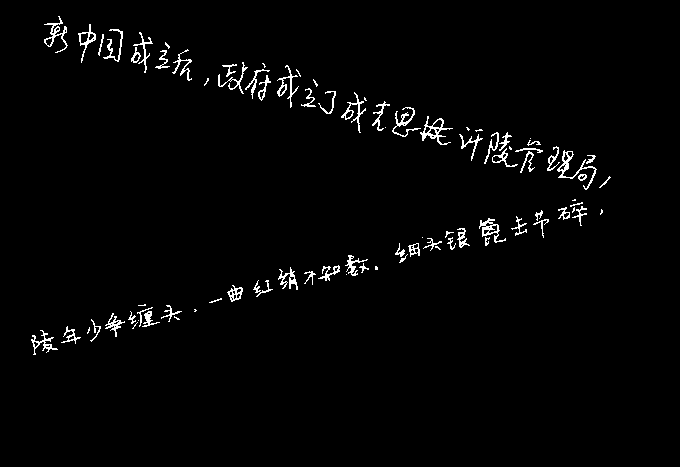 新中国成立后,政府成立了成吉思汗陵管理局,
陵年少争缠头,一曲红绡不知数。细头银篦击节碎,